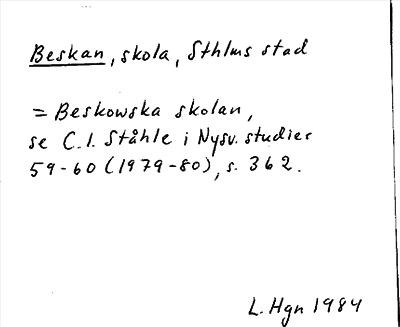 Beskan, skola, Sthlms stad
= Beskowska skolan,
se C.I. Ståhle i Nysv. studier
59-60 (1979-80), s. 362.
L. Hgn 1984